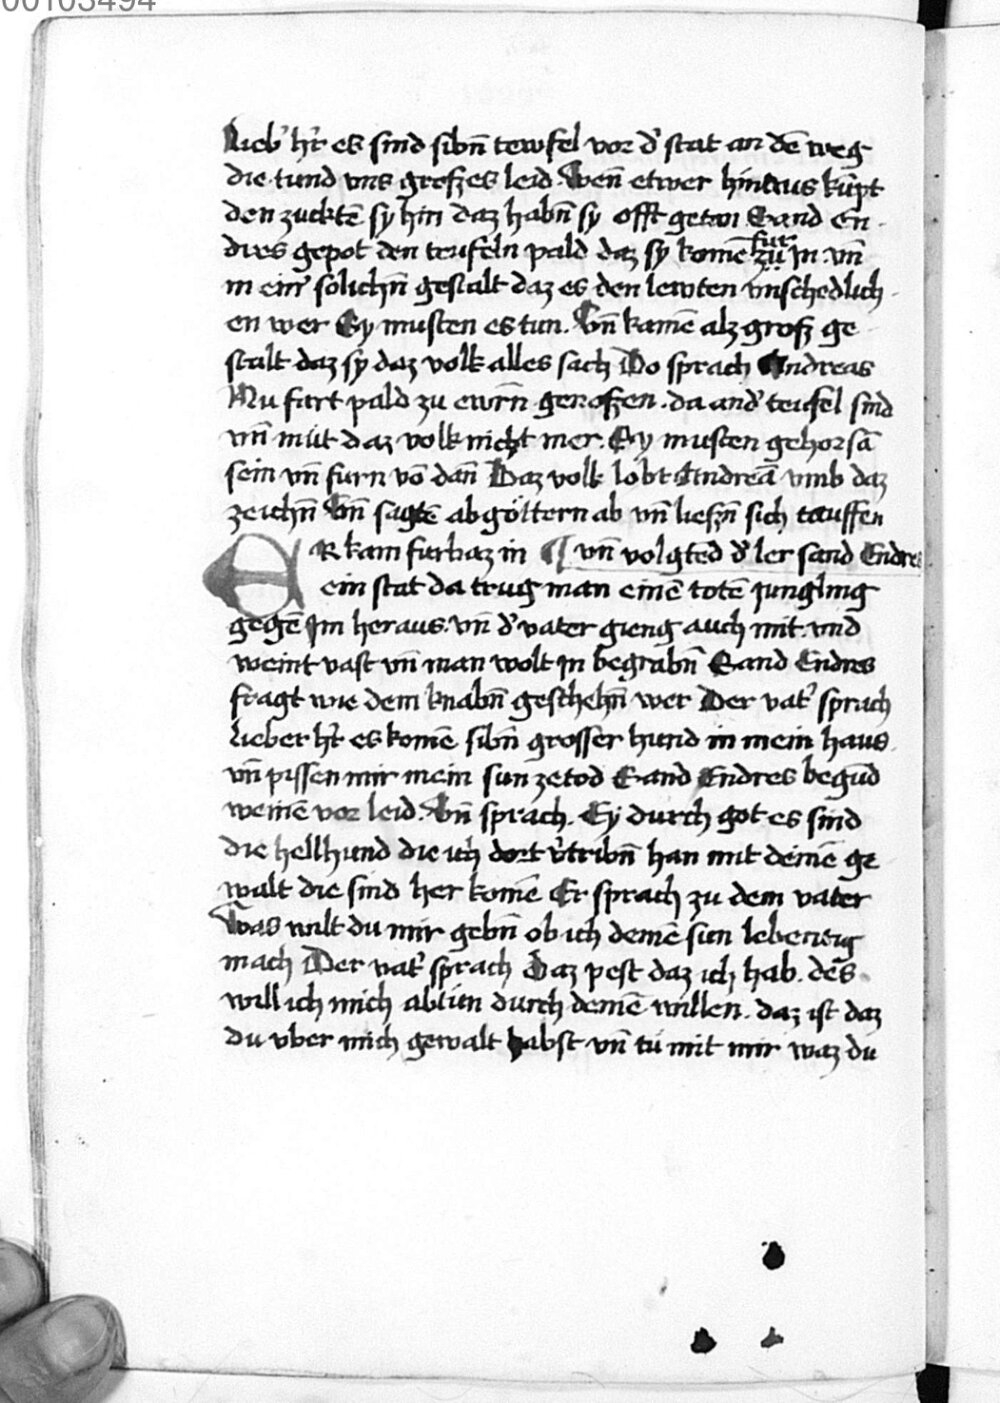 00103494
lieb' h'r es sind sibn̄ tewfel vor d' stat an dē weg
die tund vns groſzes leid. Wen̄ etwer hinaus kūpt
den zucktē sy hin daz habn̄ sy offt getan Sand En
dres gepot den teufeln pald daz sy komē fur zů in. vn̄
in ein' solichn̄ gestalt daz es den lewten vnschedlich
en wer Sy musten es tun. Vn̄ kamē alz groſz ge
stalt daz sy daz volk alles sach Do sprach Andreas
Nu fart pald zu ewrn̄ genoſzen. da and' teufel sind
vn̄ müt daz volk nicht mer. Sy musten gehorsā
sein vn̄ furn vō dan̄ Daz volk lobt Andreā vmb daz
zeichn̄ Vn̄ sagtē abgöttern ab vn̄ lieſzn̄ sich tauffen
ER kam furbaz in ¶ vn̄ volgtēd d' ler sand Endres
ein stat da trug man einē totē jungling
gegē Im heraus. vn̄ d' vater gieng auch mit. vnd
weint vast vn̄ man wolt in begrabn̄ Sand Endres
fragt wie dem knabn̄ geschehn̄ wer Der vat' sprach
lieber h'r es komē sibn̄ grosser hund in mein haus
vn̄ pissen mir mein sun ze tod Sand Endres begūd
weinē vor leid. Vn̄ sprach. Ey durch got es sind
die hellhund die ich dort v'tribn̄ han mit deinē ge
walt die sind her komē Er sprach zu dem vater
Was wilt du mir gebn̄ ob ich deinē sun lebentig
mach Der vat' sprach Daz pest daz ich hab. des
will ich mich abtün durch deinē willen. daz ist daz
du vber mich gewalt habst vn̄ tü mit mir waz du